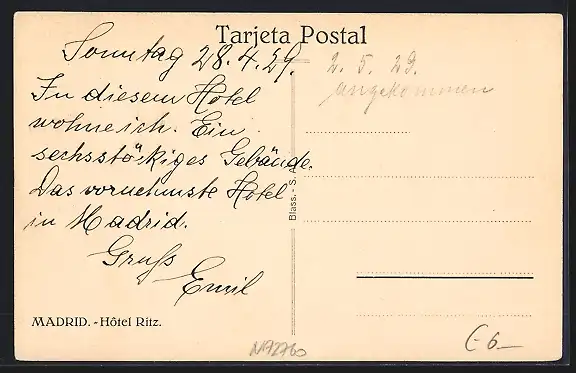 Tarjeta Postal
Sonntag 28.4.29.
In diesem Hotel
wohne ich. Ein
sechsstöckiges Gebäude.
Das vornehmste Hotel
in Madrid.
Gruß
Emil
MADRID. - Hôtel Ritz.
Blass. - S. A.
2. 5. 29.
angekommen
N72760
€ 6-